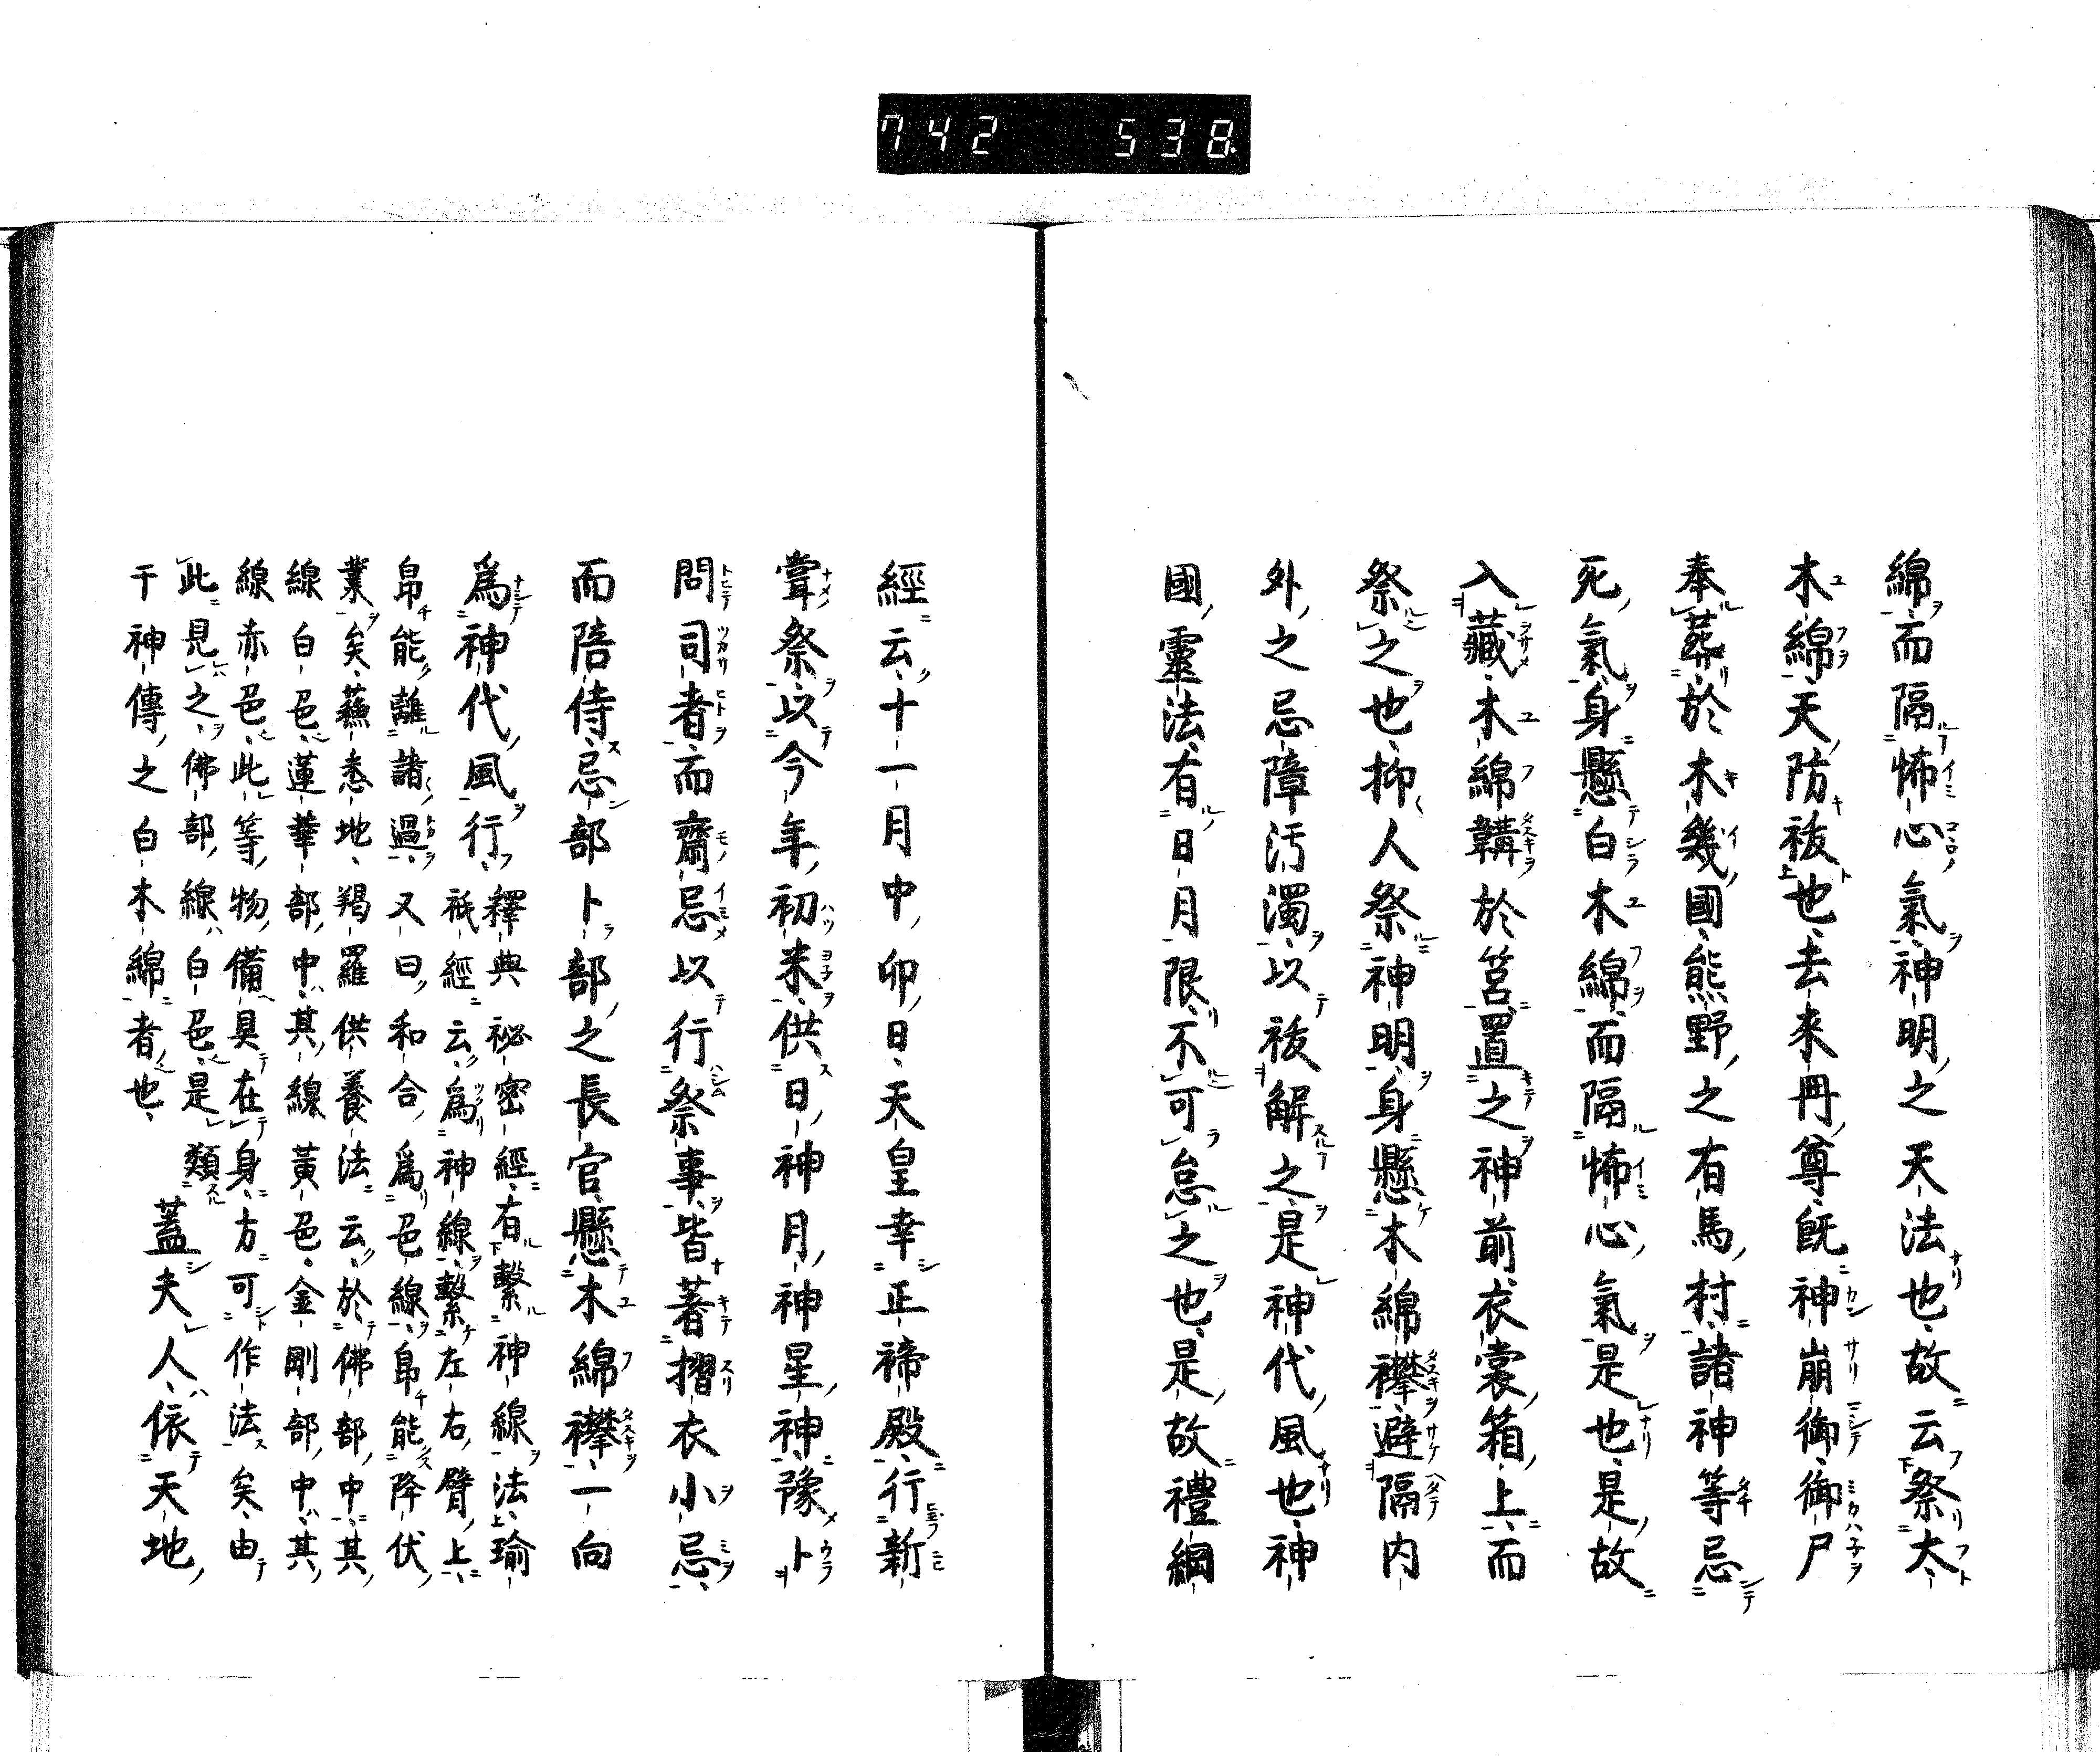 742 538
綿而隔怖心氣神明之天法也故云祭太
木綿天防祓也去來冊尊既神崩御御尸
奉葬於木幾國熊野之有馬村諸神等忌
死氣身懸白木綿而隔怖心氣是也是故
入藏木綿韝於筥置之神前衣裳箱上而
祭之也抑人祭神明身懸木綿襷避隔内
外之忌障汚濁以祓解之是神代風也神
國靈法有日月限不可怠之也是故禮綱
經云十一月中卯日天皇幸正禘殿行新
甞祭以今年初米供日神月神星神豫卜
問司者而齋忌以行祭事皆著摺衣小忌
而陪侍忌部卜部之長官懸木綿襷一向
爲神代風行
釋典祕密經有繫神線法瑜
祇經云爲神線繫左右臂上
帛能離諸過又曰和合爲色線帛能降伏
業矣蘓悉地羯羅供養法云於佛部中其
線白色蓮華部中其線黃色金剛部中其
線赤色此等物備具在身方可作法矣由
此見之佛部線白色是類
于神傳之白木綿者也
蓋夫人依天地